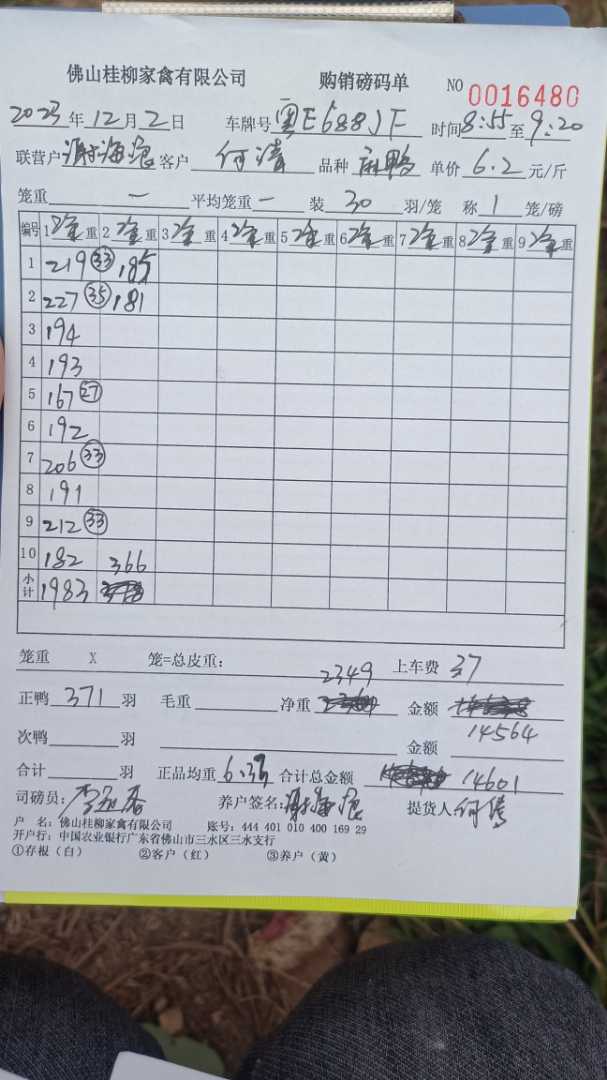 佛山桂柳家禽有限公司 购销磅码单 NO 0016480
2023年12月2日 车牌号 粤E688JF 时间8:55至9:20
联营户 谢海浪 客户 何清 品种 麻鸭 单价 6.2 元/斤
笼重 — 平均笼重 — 装 30 羽/笼 称 1 笼/磅
编号 1 净重 2 净重 3 净重 4 净重 5 净重 6 净重 7 净重 8 净重 9 净重
1 219 33 185
2 227 35 181
3 194
4 193
5 167 27
6 192
7 206 33
8 191
9 212 33
10 182 366
小计 1983
笼重 X 笼=总皮重: 2349 上车费 37
正鸭 371 羽 毛重 净重 金额
14564
次鸭 羽 金额
合计 羽 正品均重 6.33 合计总金额 14601
司磅员: 养户签名: 谢海浪 提货人 何清
户 名: 佛山桂柳家禽有限公司 账号: 444 401 010 400 169 29
开户行: 中国农业银行广东省佛山市三水区三水支行
①存根(白) ②客户(红) ③养户(黄)